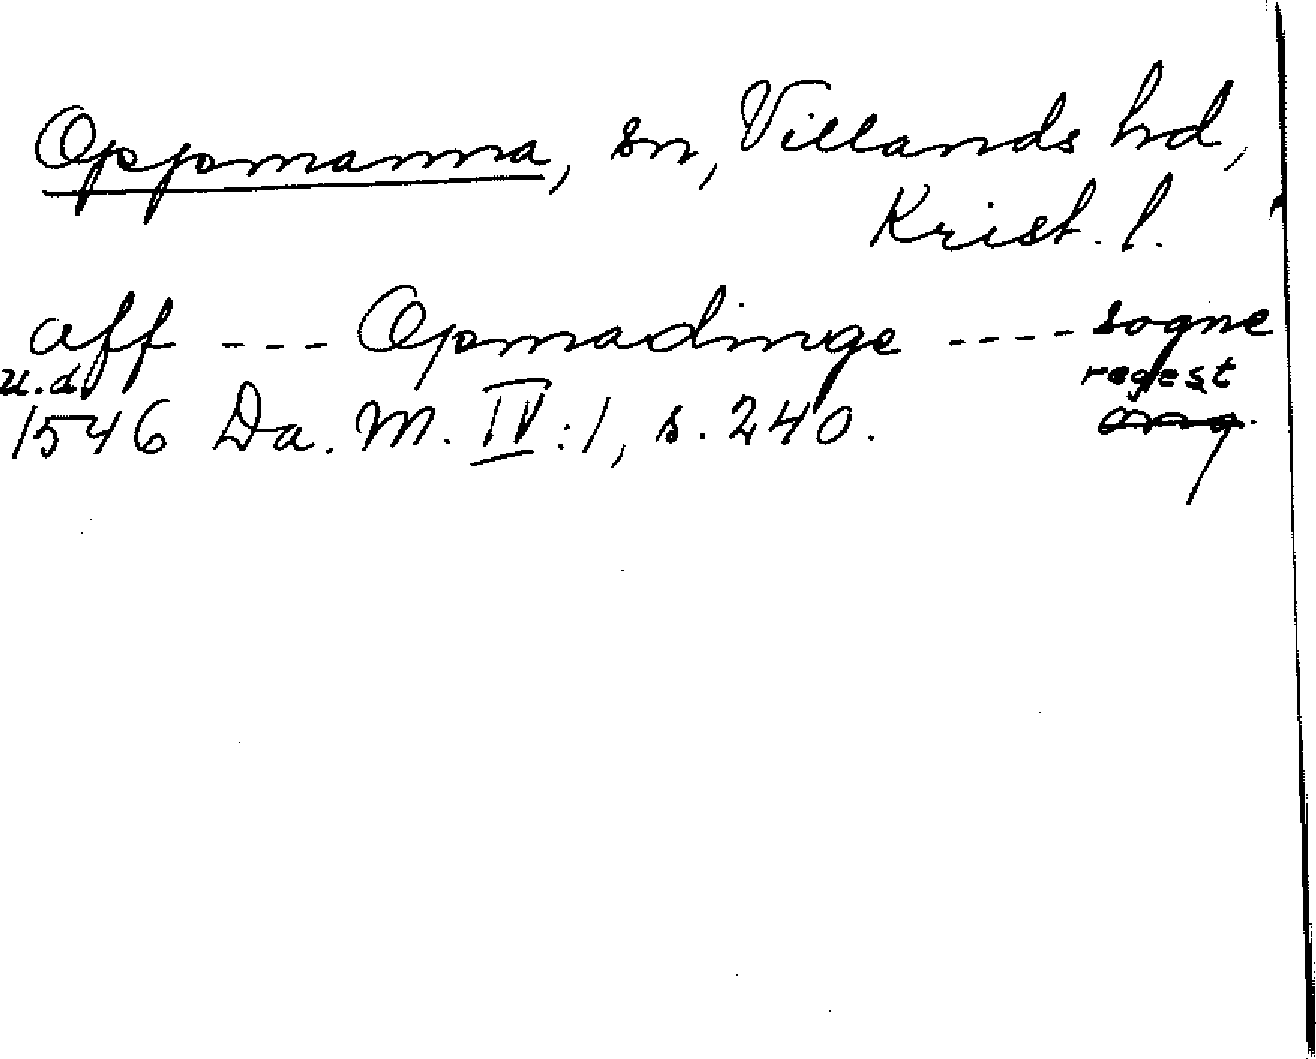 Oppmanna, sn, Villands hd,
Krist. l.
aff --- Opmadinge ---- sogne
u.d. regest
1546 Da. M. IV:1, s. 240. orig.